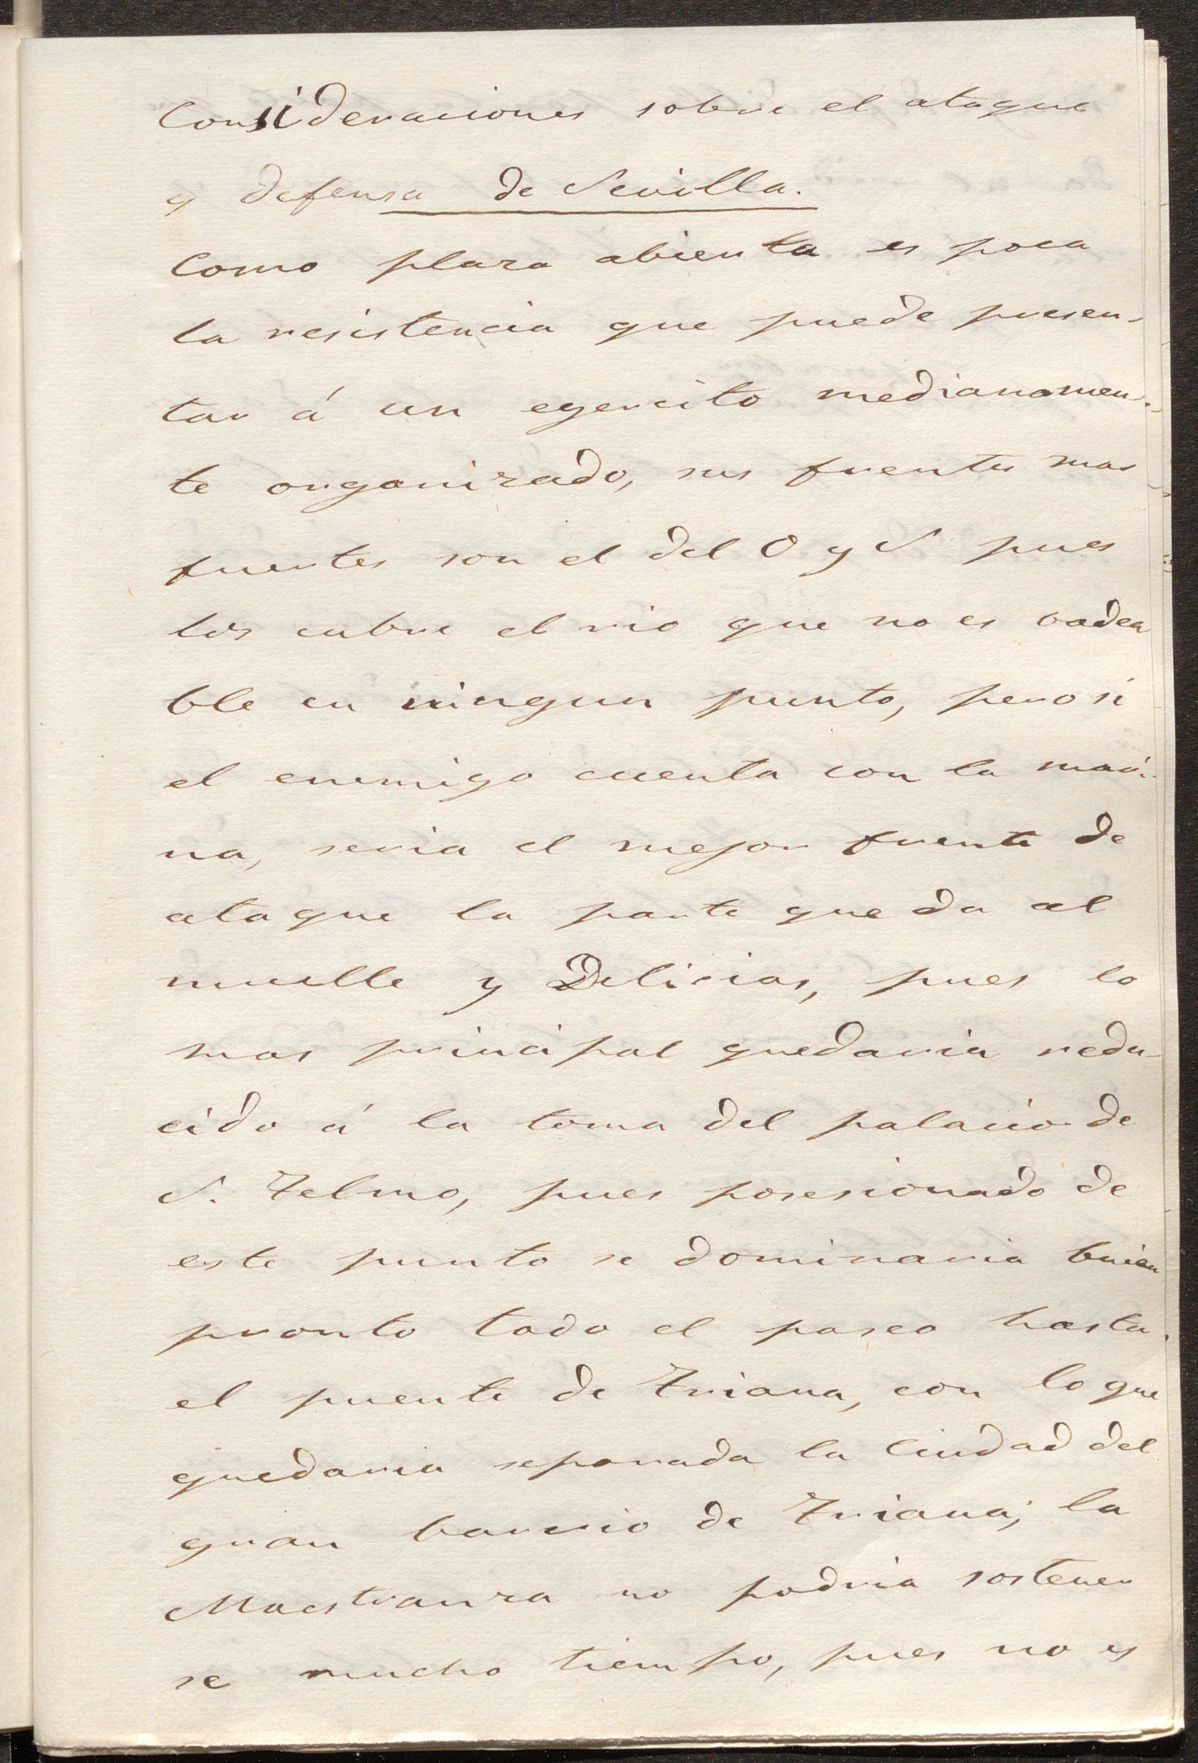 Consideraciones sobre el ataque
y defensa de Sevilla.
Como plaza abierta es poca
la resistencia que puede presen-
tar á un egercito medianamen-
te organizado, sus frentes mas
fuertes son el del O y S pues
los cubre el rio que no es vadea
ble en ningun punto, pero si
el enemigo cuenta con la mari-
na, seria el mejor frente de
ataque la parte que da al
muelle y Delicias, pues lo
mas principal quedaria redu-
cido á la toma del palacio de
S. Telmo, pues posesionado de
este punto se dominaria bien
pronto todo el paseo hasta
el puente de Triana, con lo que
quedaria separada la Ciudad del
gran barrio de Triana; la
Maestranza no podria sostener
se mucho tiempo, pues no es